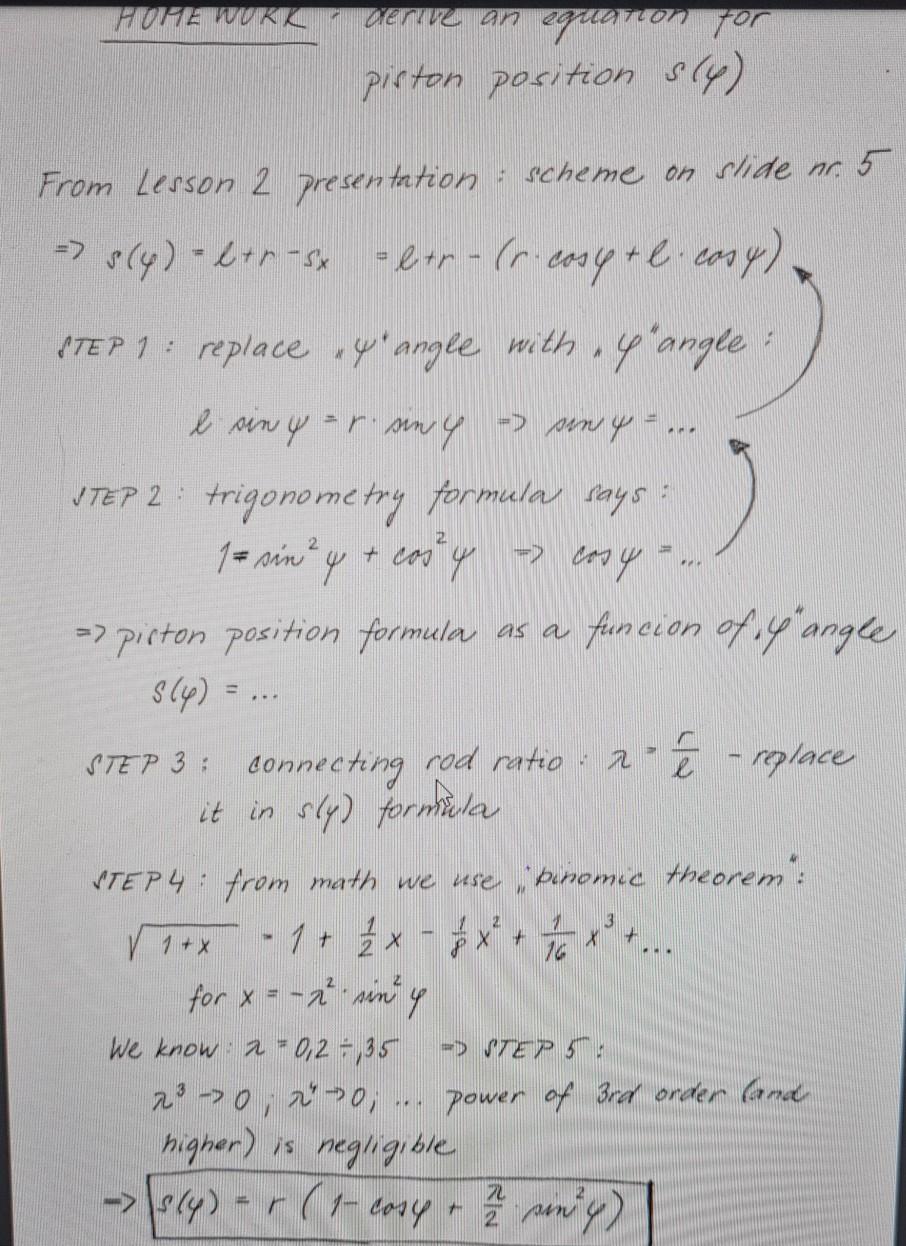 HOMEWORK : derive an equation for
piston position s(φ)
From Lesson 2 presentation : scheme on slide nr. 5
=> s(φ) = l+r-sx = l+r - (r·cosφ + l·cosψ)
STEP 1 : replace „ψ" angle with „φ" angle :
l sinψ = r· sinφ => sinψ = ...
STEP 2 : trigonometry formula says :
1= sin²ψ + cos²ψ => cosψ = ...
=> piston position formula as a funcion of „φ" angle
s(φ) = ...
STEP 3 : connecting rod ratio : λ = r/l - replace
it in s(φ) formula
STEP 4 : from math we use „binomic theorem" :
√(1+x) = 1 + 1/2 x - 1/8 x² + 1/16 x³ + ...
for x = -λ²· sin²φ
We know : λ = 0,2 ÷ ,35 => STEP 5 :
λ³ -> 0 ; λ⁴ -> 0 ; ... power of 3rd order (and
higher) is negligible
=> s(φ) = r ( 1- cosφ + λ/2 · sin²φ)